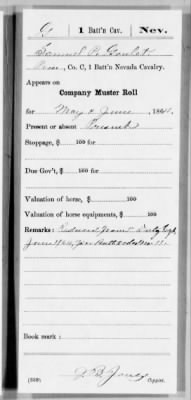 G | 1 Batt'n Cav. | Nev.
Samuel P.
, Co. C, 1 Batt'n Nevada Cavalry.
Appears on
Company Muster Roll
for May & June, 1864.
Present or absent Present
Stoppage, $ 100 for
Due Gov't, $ 100 for
Valuation of horse, $ 100
Valuation of horse equipments, $ 100
Remarks: Reduced from
June 1864, per Batt order No.
Book mark:
(358) Jones
Copyist.